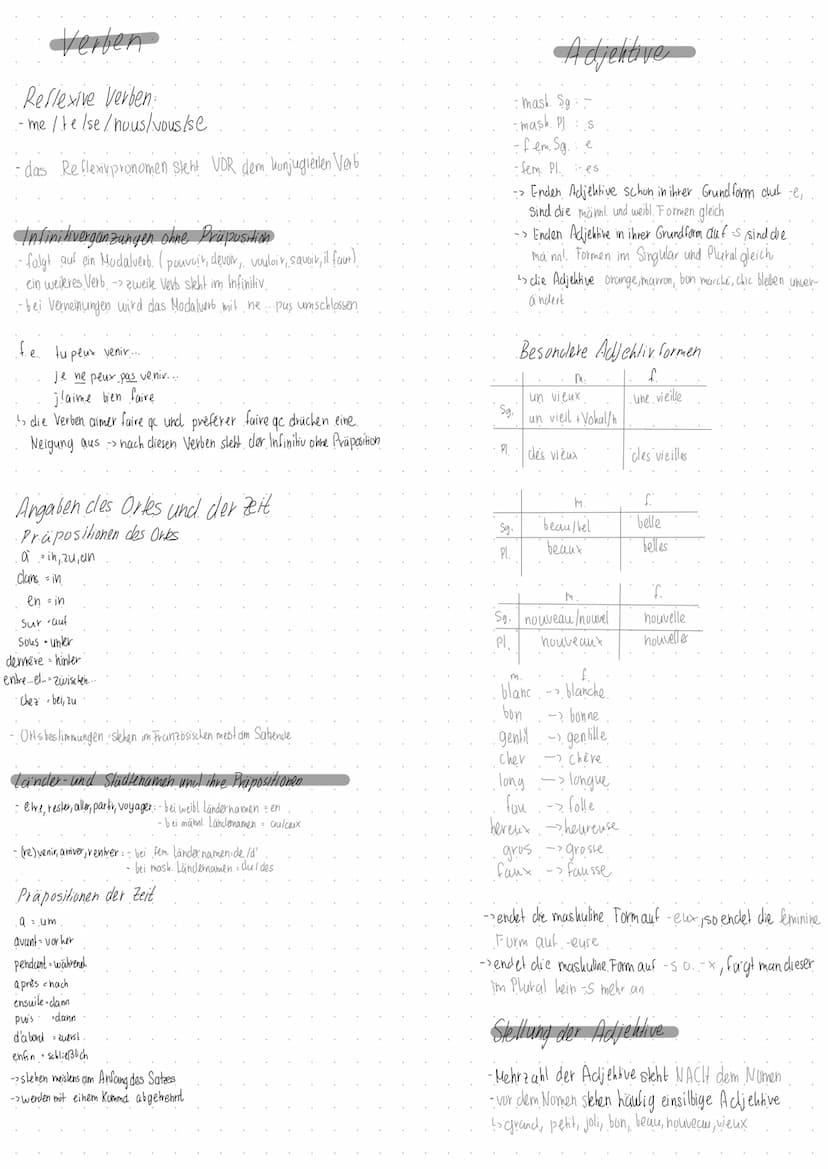 Verben
Reflexive Verben:
- me / te / se / nous / vous / se
- das Reflexivpronomen steht VOR dem konjugierten Verb
Infinitivergänzungen ohne Präposition
- folgt auf ein Modalverb (pouvoir, devoir, vouloir, savoir, il faut)
ein weiteres Verb -> zweite Verb steht im Infinitiv
- bei Verneinungen wird das Modalverb mit ne ... pas umschlossen
f.e. tu peux venir...
je ne peux pas venir...
j'aime bien faire
↳ die Verben aimer faire qc und préférer faire qc drücken eine
Neigung aus -> nach diesen Verben steht der Infinitiv ohne Präposition
Angaben des Ortes und der Zeit
Präpositionen des Orts
à = in, zu, an
dans = in
en = in
sur = auf
sous = unter
derrière = hinter
entre et = zwischen
chez = bei, zu
- Ortsbestimmungen stehen im Französischen meist am Satzende
Länder- und Städtenamen und ihre Präpositionen
- être, rester, aller, partir, voyager: - bei weibl. Ländernamen = en
- bei männl. Ländernamen = au/aux
- (re)venir, arriver, rentrer: - bei fem. Ländernamen: de/d'
- bei mask. Ländernamen = du/des
Präpositionen der Zeit
à = um
avant = vorher
pendant = während
après = nach
ensuite = dann
puis = dann
d'abord = zuerst
enfin = schließlich
-> stehen meistens am Anfang des Satzes
-> werden mit einem Komma abgetrennt
Adjektive
- mask. Sg. : -
- mask. Pl : s
- fem. Sg. : e
- fem. Pl. : -es
-> Enden Adjektive schon in ihrer Grundform auf -e,
sind die männl. und weibl. Formen gleich
-> Enden Adjektive in ihrer Grundform auf -s, sind die
männl. Formen im Singular und Plural gleich
↳ die Adjektive orange, marron, bon marché, chic bleiben unver-
ändert
Besondere Adjektivformen
m. f.
Sg. un vieux une vieille
un vieil + Vokal/h
Pl. des vieux des vieilles
m. f.
Sg. beau/bel belle
Pl. beaux belles
m. f.
Sg. nouveau/nouvel nouvelle
Pl. nouveaux nouvelles
m. f.
blanc -> blanche
bon -> bonne
gentil -> gentille
cher -> chère
long -> longue
fou -> folle
hereux -> heureuse
gros -> grosse
faux -> fausse
-> endet die maskuline Form auf -eux, so endet die feminine
Form auf -euse
-> endet die maskuline Form auf -s o. -x, fügt man dieser
im Plural kein -s mehr an
Stellung der Adjektive
- Mehrzahl der Adjektive steht NACH dem Nomen
- vor dem Nomen stehen häufig einsilbige Adjektive
↳ grand, petit, joli, bon, beau, nouveau, vieux